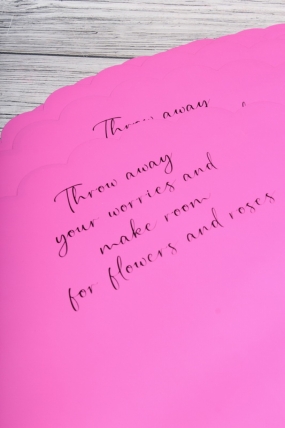 Throw away
Throw away
your worries and
make room
for flowers and roses